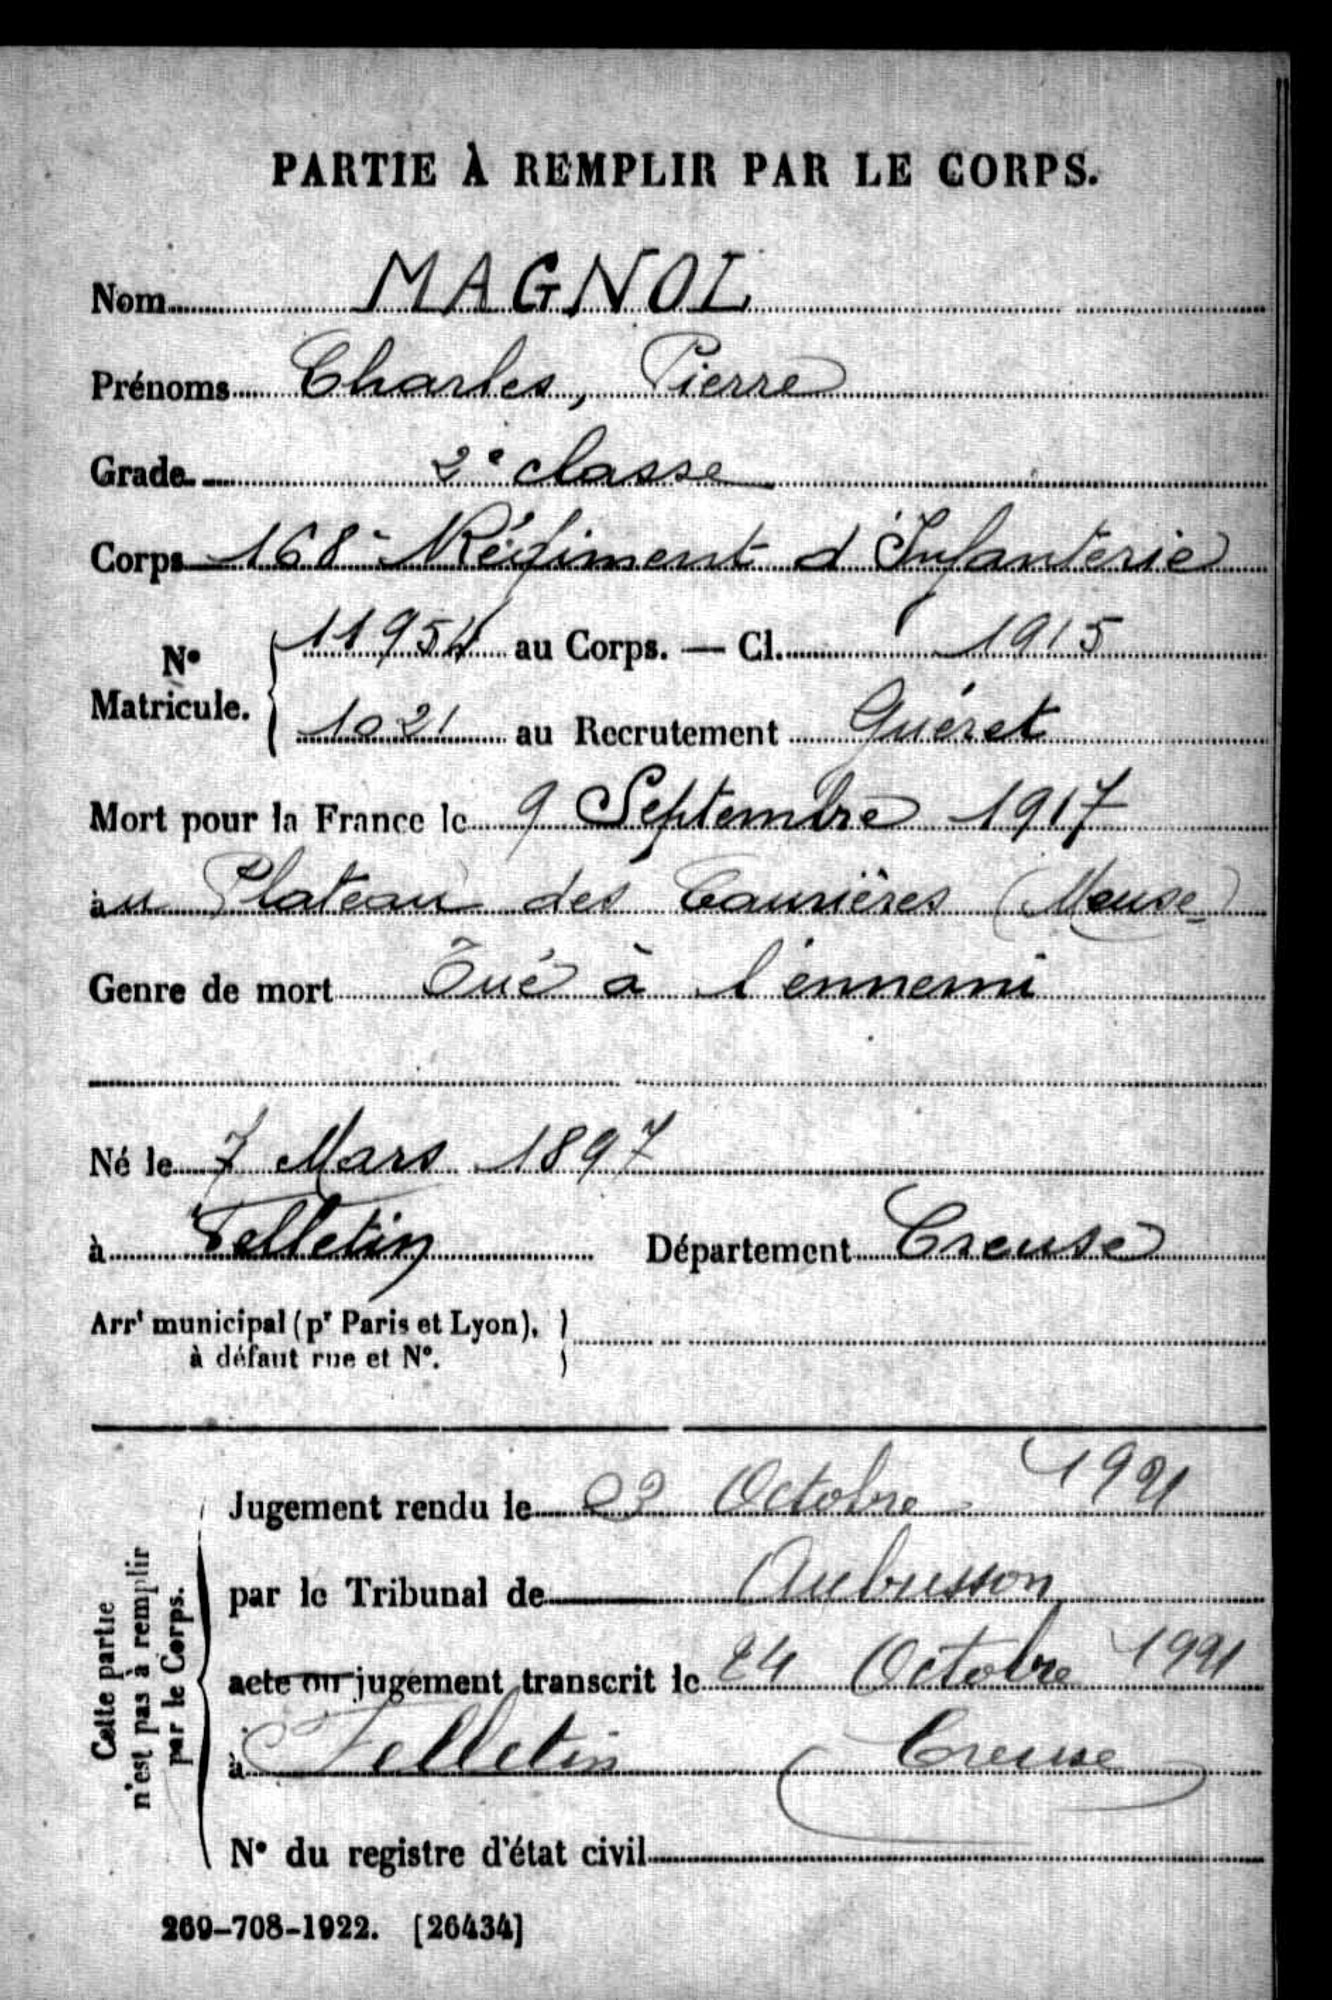 PARTIE À REMPLIR PAR LE CORPS.
Nom MAGNOL
Prénoms Charles, Pierre
Grade 2e classe
Corps 168e Régiment d'Infanterie
No Matricule. 11954 au Corps. — Cl. 1915
1021 au Recrutement Guéret
Mort pour la France le 9 Septembre 1917
au Plateau des Caurières (Meuse)
Genre de mort Tué à l'ennemi
Né le 7 Mars 1897
à Felletin Département Creuse
Arrt municipal (pr Paris et Lyon),
à défaut rue et No.
Cette partie
n'est pas à remplir
par le Corps.
Jugement rendu le Octobre 1921
par le Tribunal de Aubusson
acte ou jugement transcrit le 24 Octobre 1921
à Felletin (Creuse
No du registre d'état civil
269-708-1922. [26434]